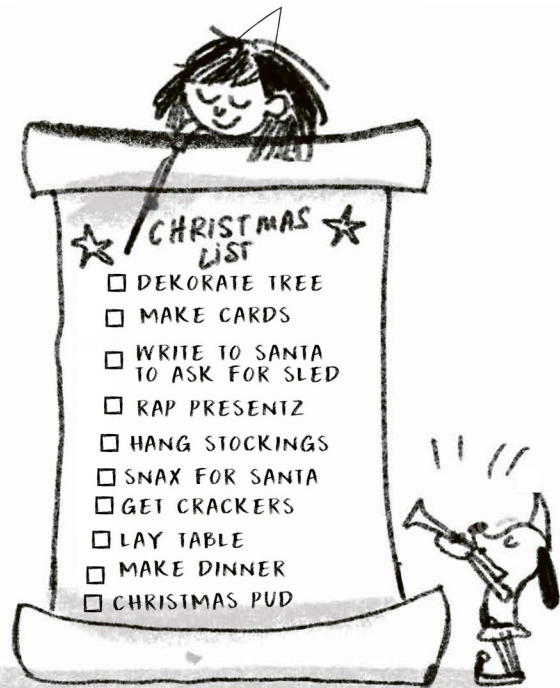 CHRISTMAS
LIST
DEKORATE TREE
MAKE CARDS
WRITE TO SANTA
TO ASK FOR SLED
RAP PRESENTZ
HANG STOCKINGS
SNAX FOR SANTA
GET CRACKERS
LAY TABLE
MAKE DINNER
CHRISTMAS PUD